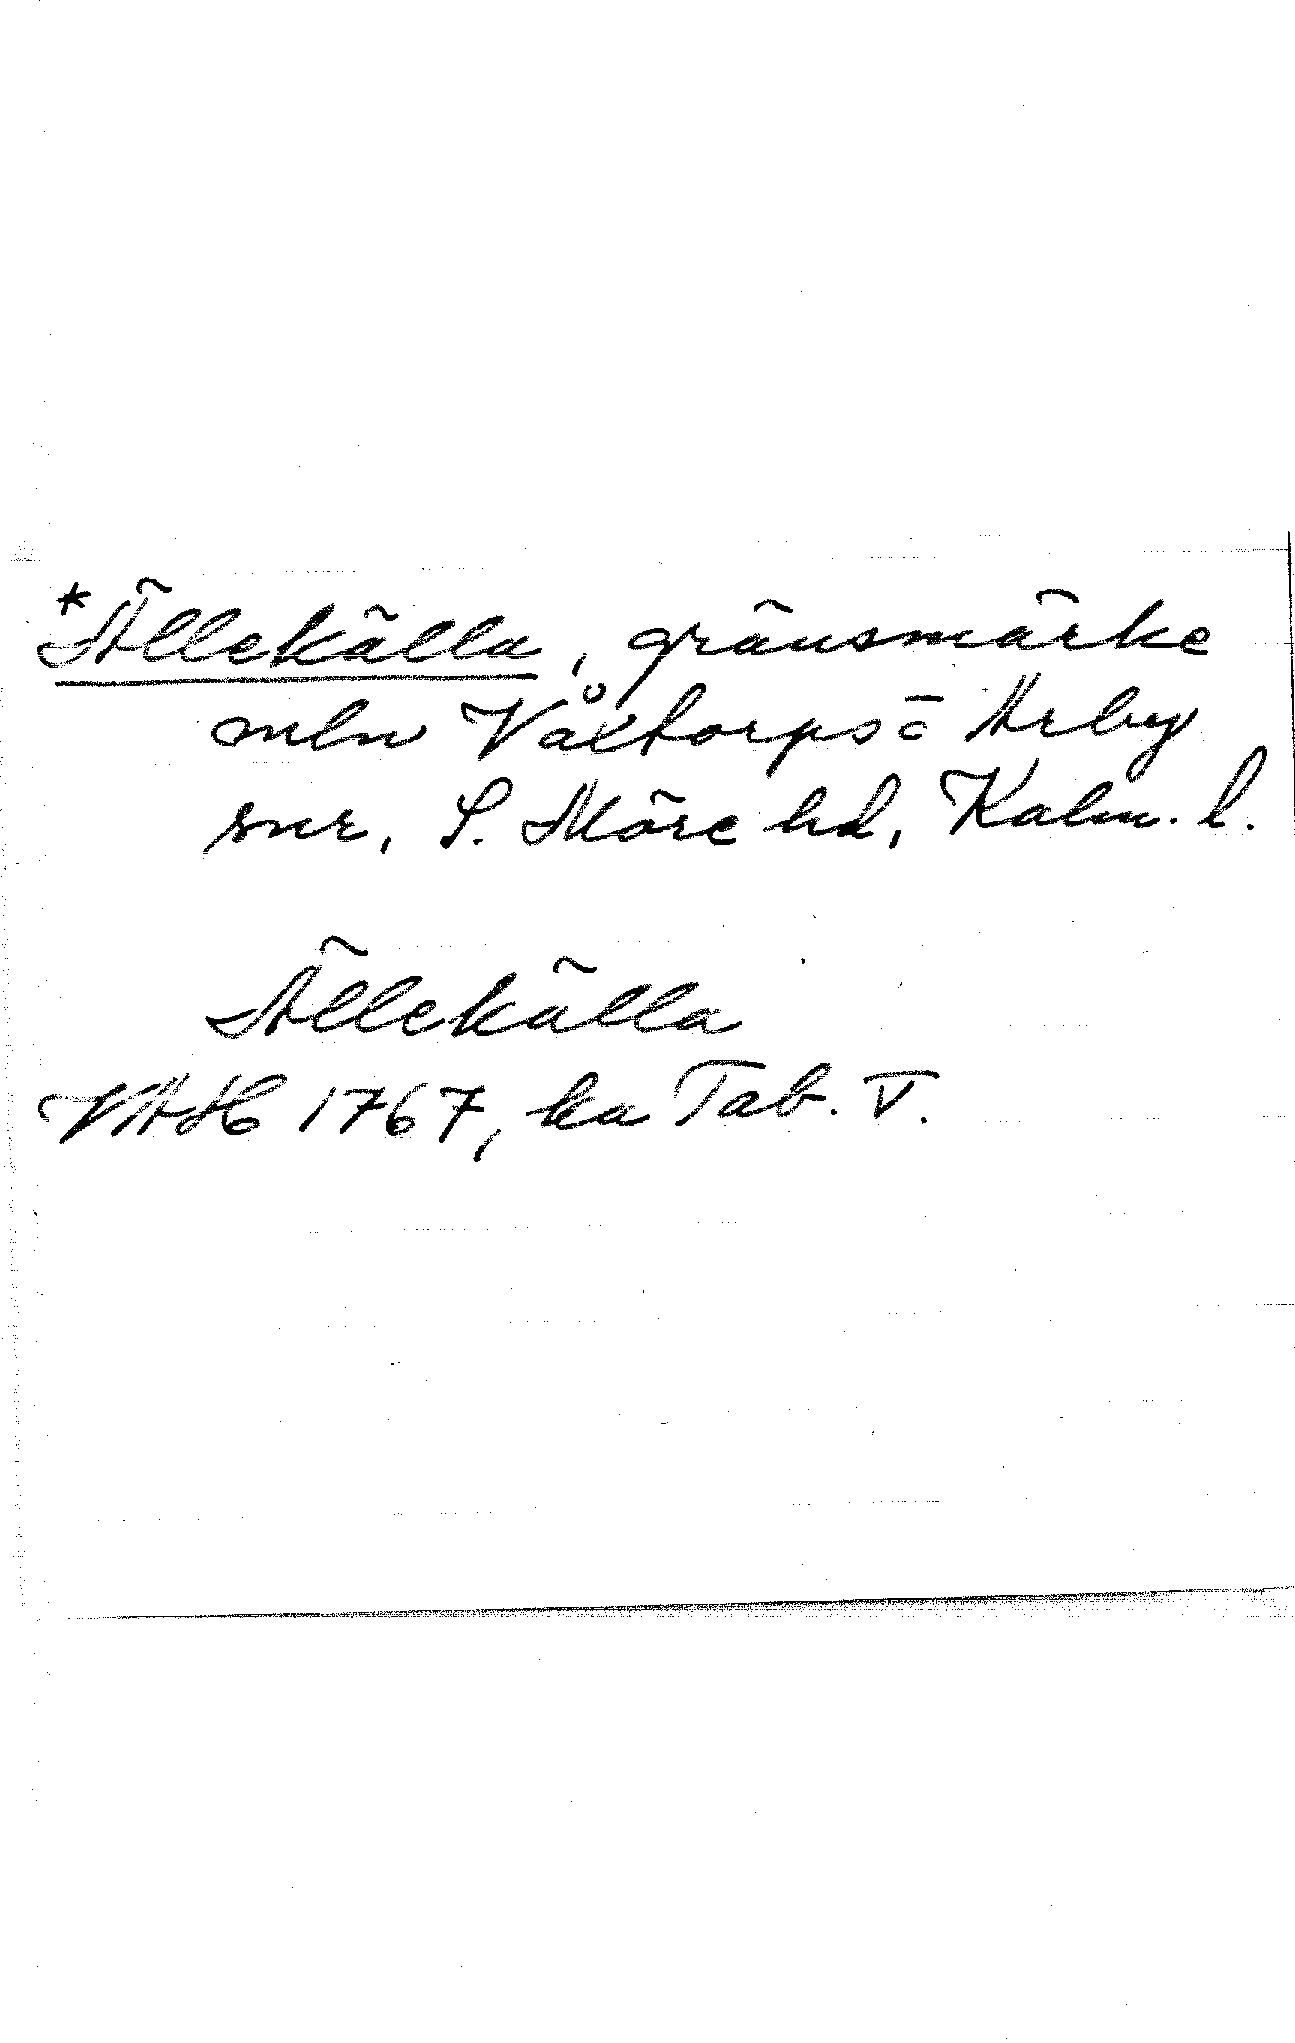 *Ällekälla, gränsmärke
mln Våxtorps o Arby
snr, S. Möre hd, Kalm. l.
Ällekälla
VAH 1767, ka Tab. V.